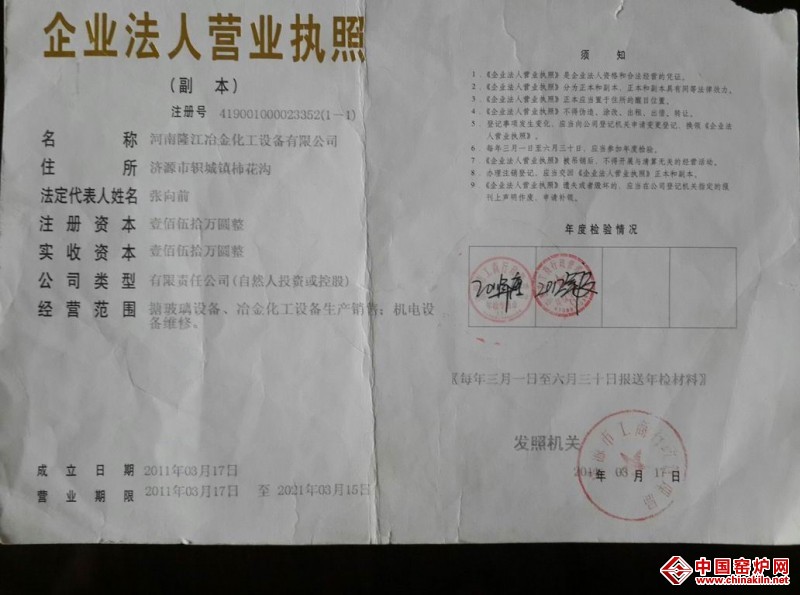 企业法人营业执照
(副 本)
注册号 419001000023352(1-1)
名 称 河南隆江冶金化工设备有限公司
住 所 济源市轵城镇柿花沟
法定代表人姓名 张向前
注册资本 壹佰伍拾万圆整
实收资本 壹佰伍拾万圆整
公司类型 有限责任公司(自然人投资或控股)
经营范围 搪玻璃设备、冶金化工设备生产销售;机电设
备维修。
成立日期 2011年03月17日
营业期限 2011年03月17日 至 2021年03月15日
须 知
1、《企业法人营业执照》是企业法人资格和合法经营的凭证。
2、《企业法人营业执照》分为正本和副本,正本和副本具有同等法律效力。
3、《企业法人营业执照》正本应当置于住所的醒目位置。
4、《企业法人营业执照》不得伪造、涂改、出租、出借、转让。
5、登记事项发生变化,应当向公司登记机关申请变更登记,换领《企业法
人营业执照》。
6、每年三月一日至六月三十日,应当参加年度检验。
7、《企业法人营业执照》被吊销后,不得开展与清算无关的经营活动。
8、办理注销登记,应当交回《企业法人营业执照》正本和副本。
9、《企业法人营业执照》遗失或者毁坏的,应当在公司登记机关指定的报
刊上声明作废,申请补领。
年度检验情况
《每年三月一日至六月三十日报送年检材料》
发照机关
年 03 月 17 日
中国窑炉网
www.chinakiln.net